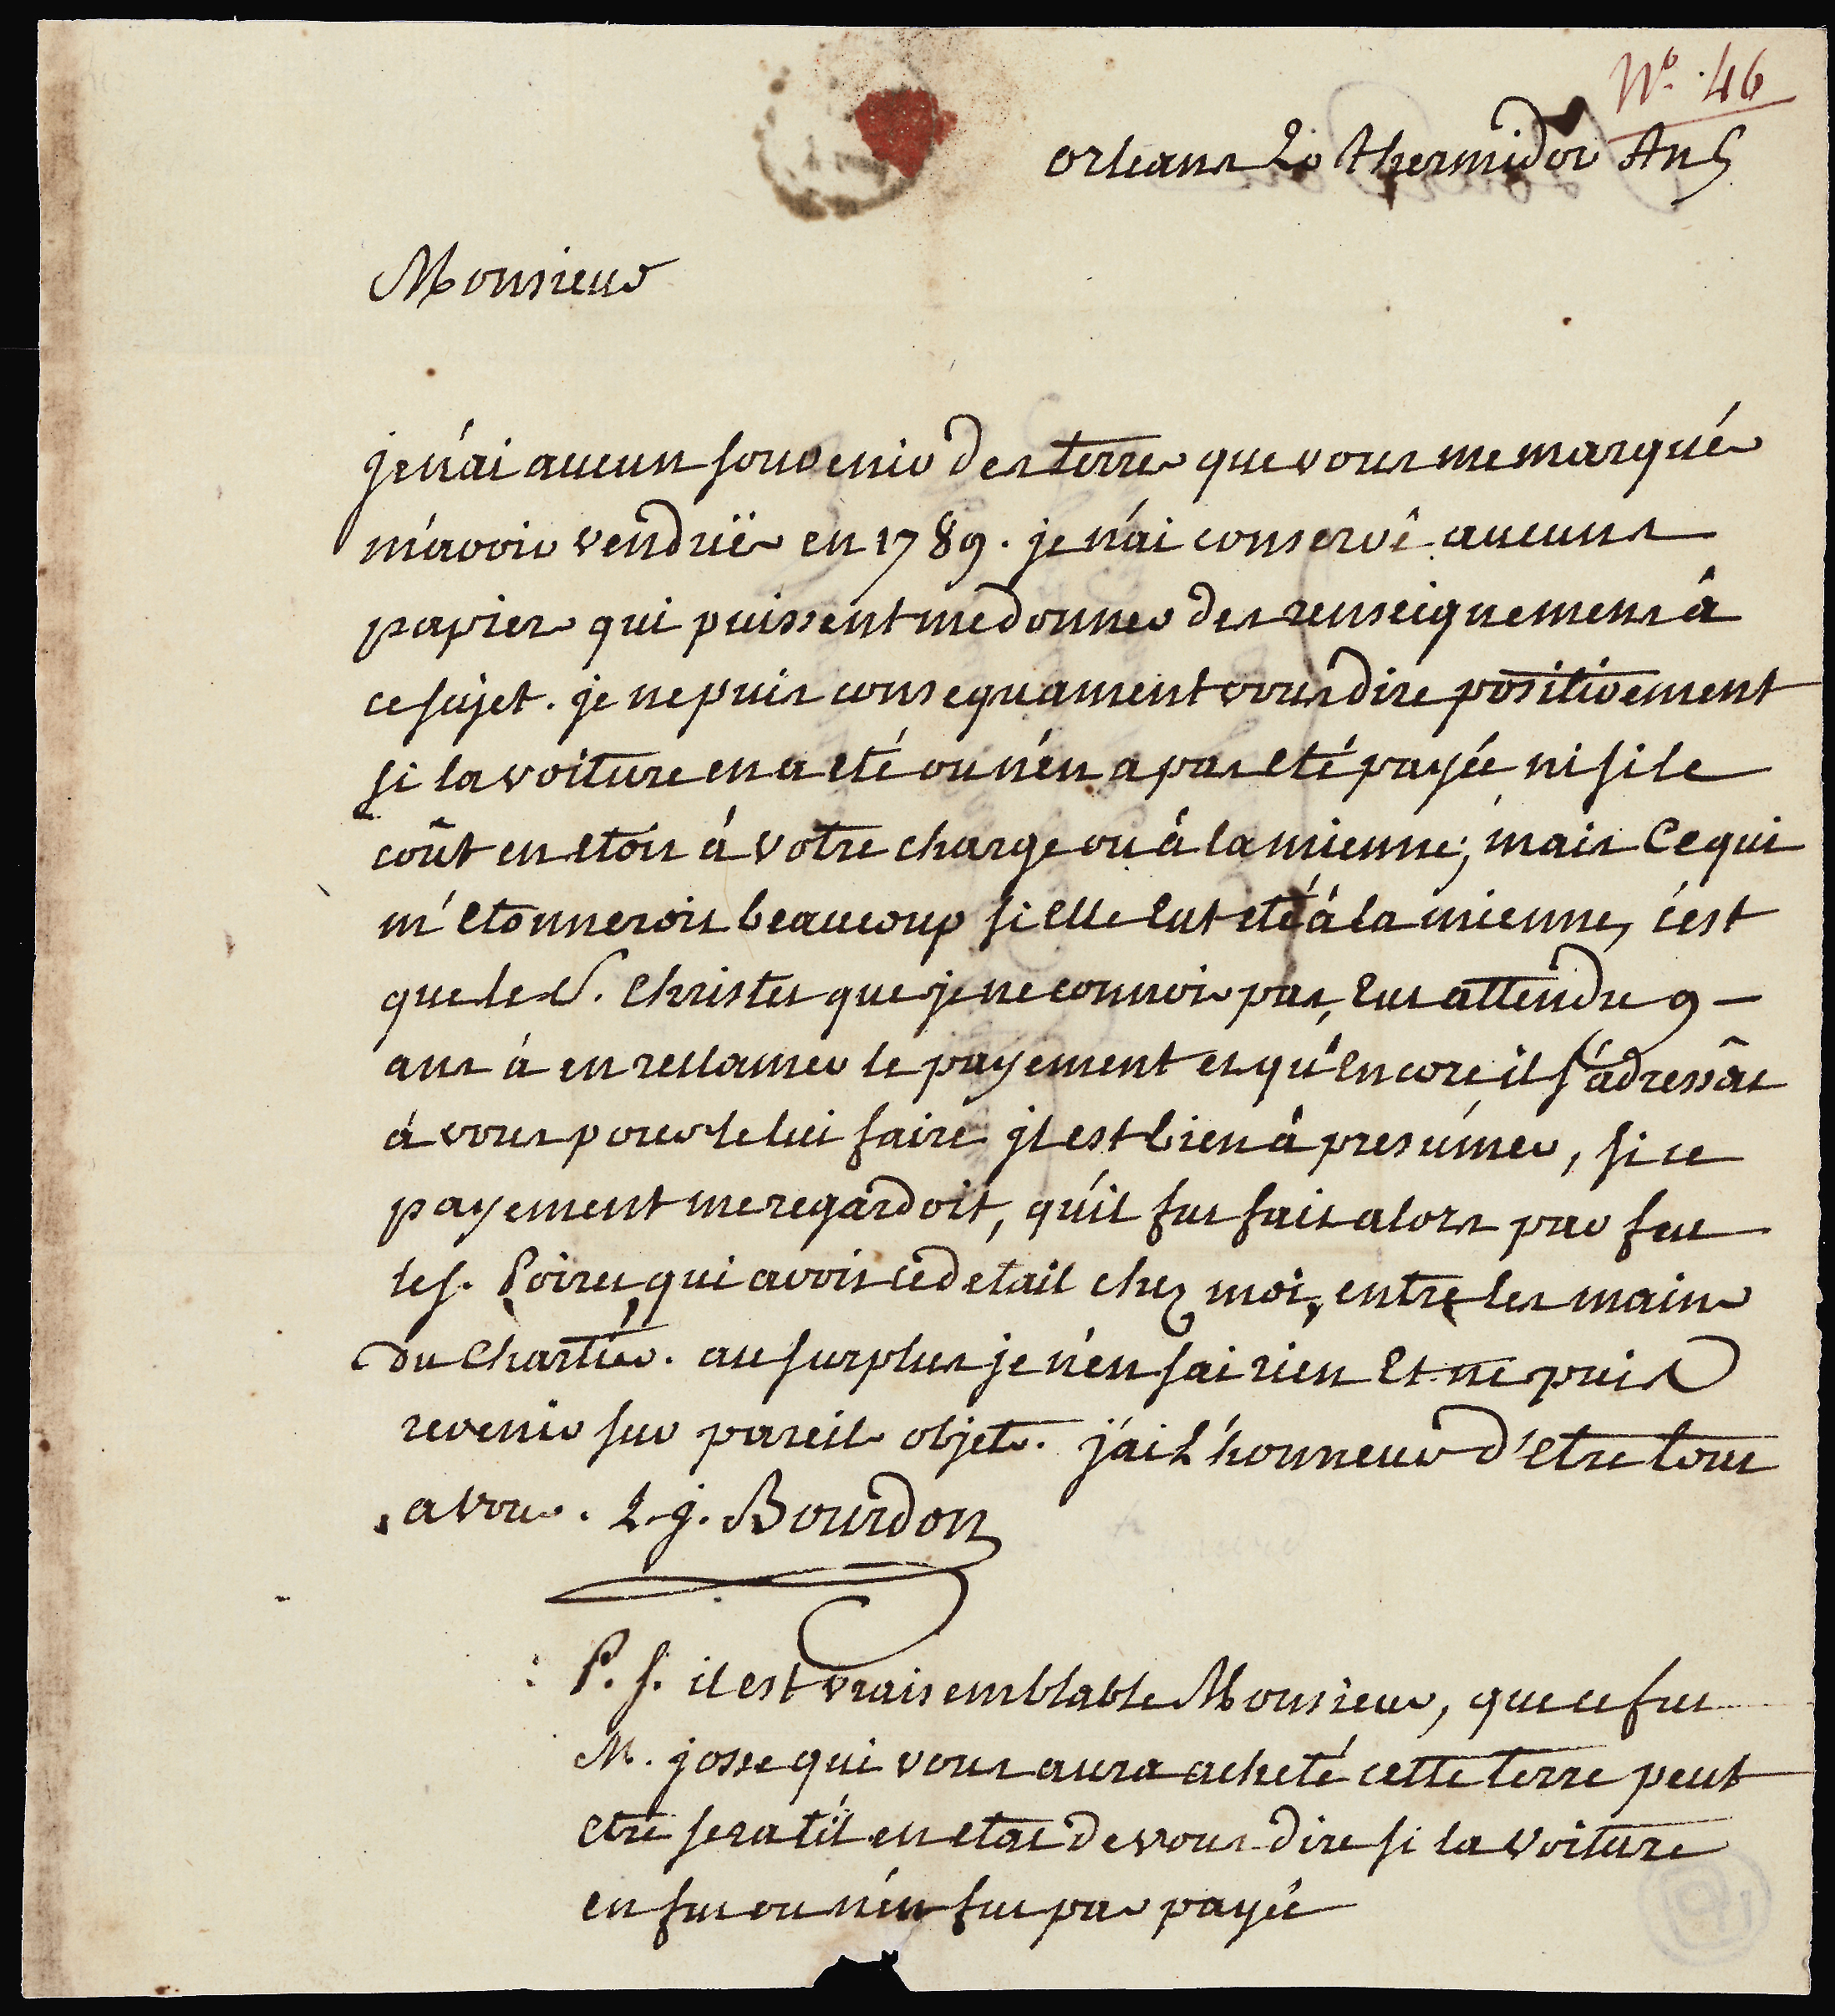 N.º 46
orleans 20 thermidor An 5
Monsieur
je n'ai aucun souvenir des terres que vous me marqués
m'avoir venduës en 1789. je n'ai conservé aucuns
papiers qui puissent me donner des renseignemens à
ce sujet. je ne puis consequament vous dire positivement
si la voiture en a eté ou n'en a pas eté payée ni si le
coût en etoit à votre charge ou à la mienne; mais Ce qui
m'etonneroit beaucoup si elle eut eté à la mienne, c'est
que le S. Christer que je ne connois pas, eut attendu 9 —
ans à en reclamer le payement et qu'encore il s'adressât
à vous pour le lui faire jl est bien à presumer, si ce
payement me regardoit, qu'il fut fait alors par feu
le s. Poiret, qui avoit ce detail chez moi, entre les mains
du Chartier. au surplus je n'en sai rien Et ne puis
revenir sur pareils objets. j'ai L'honneur d'etre tout
a vous. L. j. Bourdon
P. S. il est vraisemblable Monsieur, que ce fut
M. josse qui vous aura acheté cette terre peut
etre sera t'il en etat de vous dire si la voiture
en fut ou n'en fut pas payée